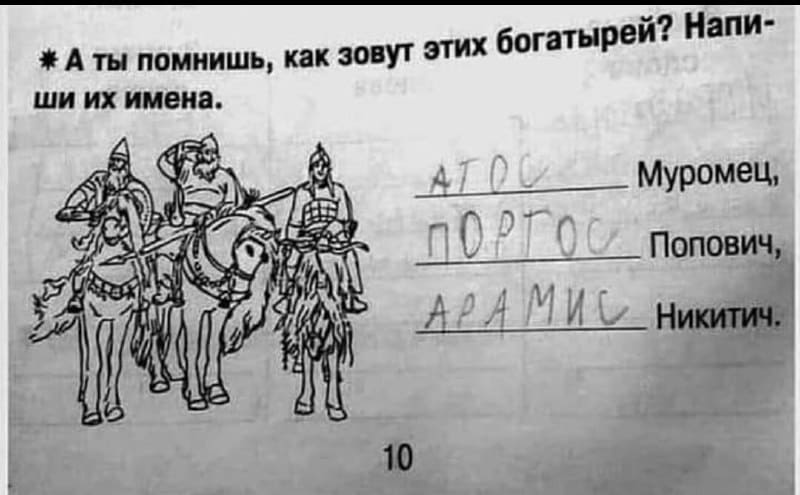 * А ты помнишь, как зовут этих богатырей? Напи-
ши их имена.
АТОС Муромец,
ПОРТОС Попович,
АРАМИС Никитич.
10